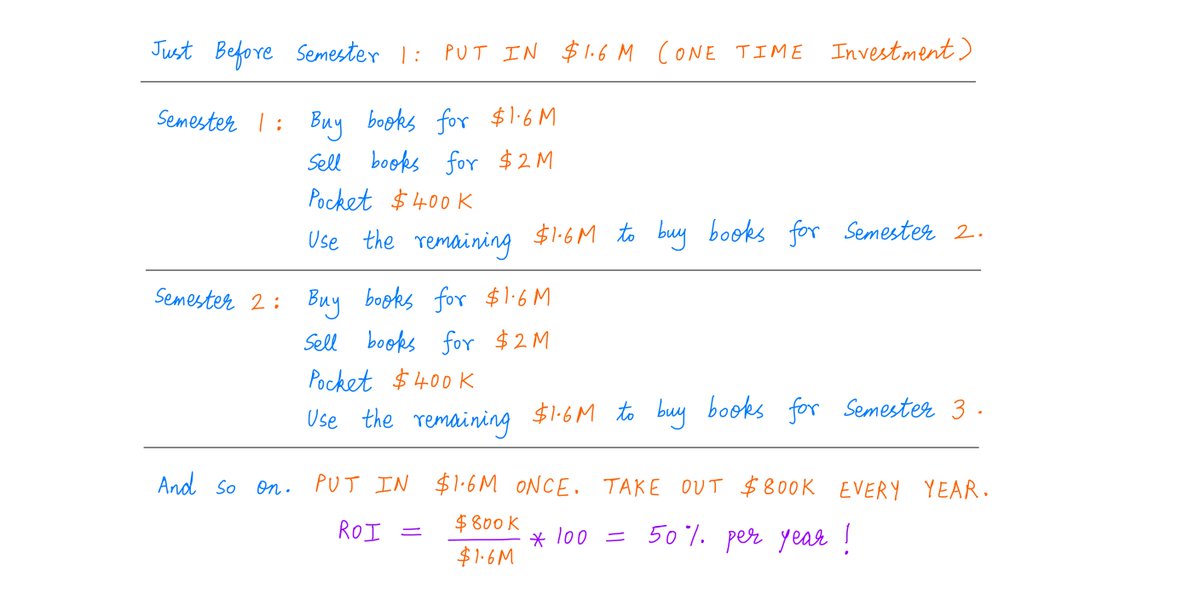 Just Before Semester 1: PUT IN $1.6 M (ONE TIME Investment)
Semester 1: Buy books for $1.6M
Sell books for $2M
Pocket $400K
Use the remaining $1.6M to buy books for Semester 2.
Semester 2: Buy books for $1.6M
Sell books for $2M
Pocket $400K
Use the remaining $1.6M to buy books for Semester 3.
And so on. PUT IN $1.6M ONCE. TAKE OUT $800K EVERY YEAR.
ROI = $800K / $1.6M * 100 = 50% per year!